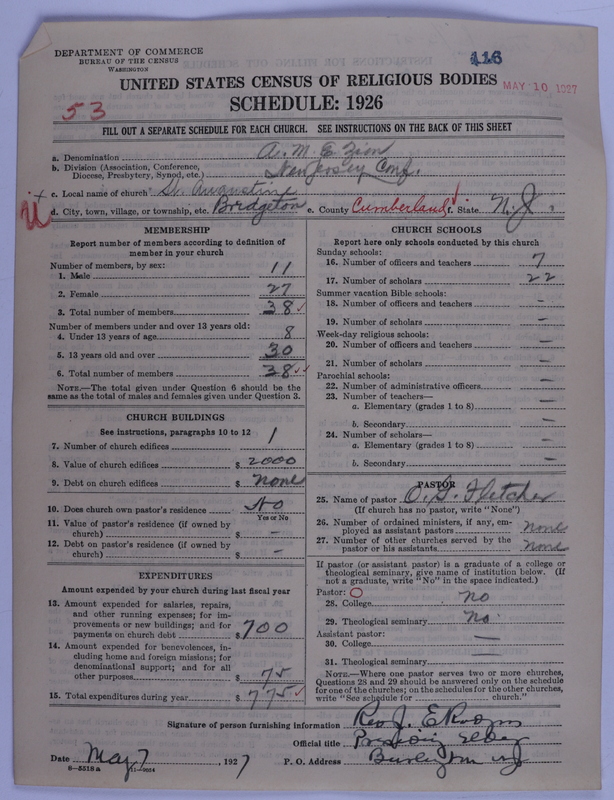 DEPARTMENT OF COMMERCE
BUREAU OF THE CENSUS
WASHINGTON
116
MAY 10 1927
UNITED STATES CENSUS OF RELIGIOUS BODIES
SCHEDULE: 1926
53
FILL OUT A SEPARATE SCHEDULE FOR EACH CHURCH. SEE INSTRUCTIONS ON THE BACK OF THIS SHEET
a. Denomination A. M. E. Zion
b. Division (Association, Conference, Diocese, Presbytery, Synod, etc.) New Jersey Conf.
c. Local name of church St. Augustine
d. City, town, village, or township, etc. Bridgeton e. County Cumberland f. State N. J.
MEMBERSHIP
Report number of members according to definition of
member in your church
Number of members, by sex:
1. Male 11
2. Female 27
3. Total number of members 38
Number of members under and over 13 years old:
4. Under 13 years of age 8
5. 13 years old and over 30
6. Total number of members 38
NOTE.—The total given under Question 6 should be
same as the total of males and females given under Question 3.
CHURCH BUILDINGS
See instructions, paragraphs 10 to 12
7. Number of church edifices 1
8. Value of church edifices $ 2000
9. Debt on church edifices $ none
10. Does church own pastor's residence No
Yes or No
11. Value of pastor's residence (if owned by
church) $ —
12. Debt on pastor's residence (if owned by
church) $ —
EXPENDITURES
Amount expended by your church during last fiscal year
13. Amount expended for salaries, repairs,
and other running expenses; for im-
provements or new buildings; and for
payments on church debt $ 700
14. Amount expended for benevolences, in-
cluding home and foreign missions; for
denominational support; and for all
other purposes $ 75
15. Total expenditures during year $ 775
CHURCH SCHOOLS
Report here only schools conducted by this church
Sunday schools:
16. Number of officers and teachers 7
17. Number of scholars 22
Summer vacation Bible schools:
18. Number of officers and teachers —
19. Number of scholars —
Week-day religious schools:
20. Number of officers and teachers —
21. Number of scholars —
Parochial schools:
22. Number of administrative officers —
23. Number of teachers—
a. Elementary (grades 1 to 8) —
b. Secondary —
24. Number of scholars—
a. Elementary (grades 1 to 8) —
b. Secondary —
PASTOR
25. Name of pastor O. G. Fletcher
(If church has no pastor, write "None")
26. Number of ordained ministers, if any, em-
ployed as assistant pastors none
27. Number of other churches served by the
pastor or his assistants none
If pastor (or assistant pastor) is a graduate of a college or
theological seminary, give name of institution below. (If
not a graduate, write "No" in the space indicated.)
Pastor:
28. College no
29. Theological seminary no
Assistant pastor:
30. College —
31. Theological seminary —
NOTE.—Where one pastor serves two or more churches,
Questions 28 and 29 should be answered only on the schedule
for one of the churches; on the schedules for the other churches,
write "See schedule for church."
Signature of person furnishing information Rev J. E
Official title Presiding Elder
Date May 7, 1927 P. O. Address Burlington NJ
8—5518a 11—9054